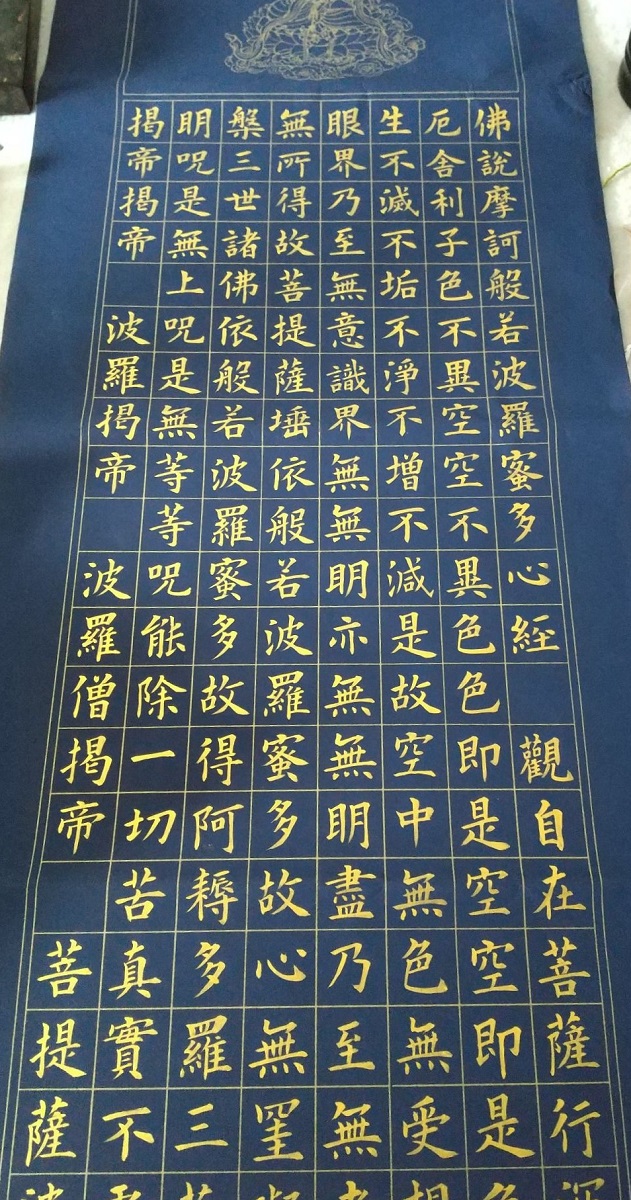 佛說摩訶般若波羅蜜多心經 觀自在菩薩行
厄舍利子色不異空空不異色色即是空空即是
生不滅不垢不淨不增不減是故空中無色無受
眼界乃至無意識界無無明亦無無明盡乃至無
無所得故菩提薩埵依般若波羅蜜多故心無罣
槃三世諸佛依般若波羅蜜多故得阿耨多羅三
明呪是無上呪是無等等呪能除一切苦真實不
揭帝揭帝 波羅揭帝 波羅僧揭帝 菩提薩